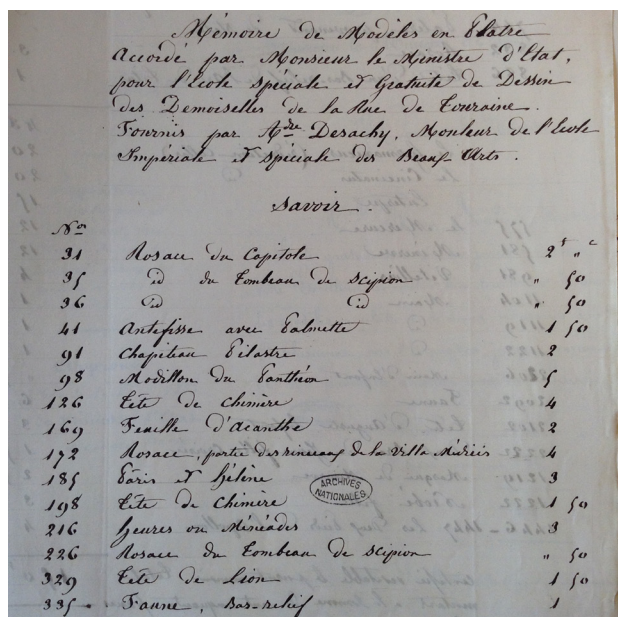 Mémoire de Modèles en Plâtre
Accordé par Monsieur le Ministre d'Etat,
pour l'Ecole spéciale et Gratuite de Dessin
des Demoiselles de la Rue de Touraine.
Fournis par Adre Desachy, Mouleur de l'Ecole
Impériale et spéciale des Beaux Arts.
Savoir.
Nos
31 Rosace du Capitole 2f " c
35 id du Tombeau de Scipion " 50
36 id id " 50
41 Antefisse avec Palmette 1 50
91 Chapiteau Pilastre 2
98 Modillon du Panthéon 5
126 Tête de Chimère 4
169 Feuille d'Acanthe 2
172 Rosace, partie des rinceaux de la Villa Médicis 4
185 Pâris et Hélène 3
198 Tête de Chimère 1 50
ARCHIVES NATIONALES
216 heures ou Ménéades 3
226 Rosace du Tombeau de Scipion " 50
329 Tête de Lion 1 50
335 Faune, Bas-relief 1